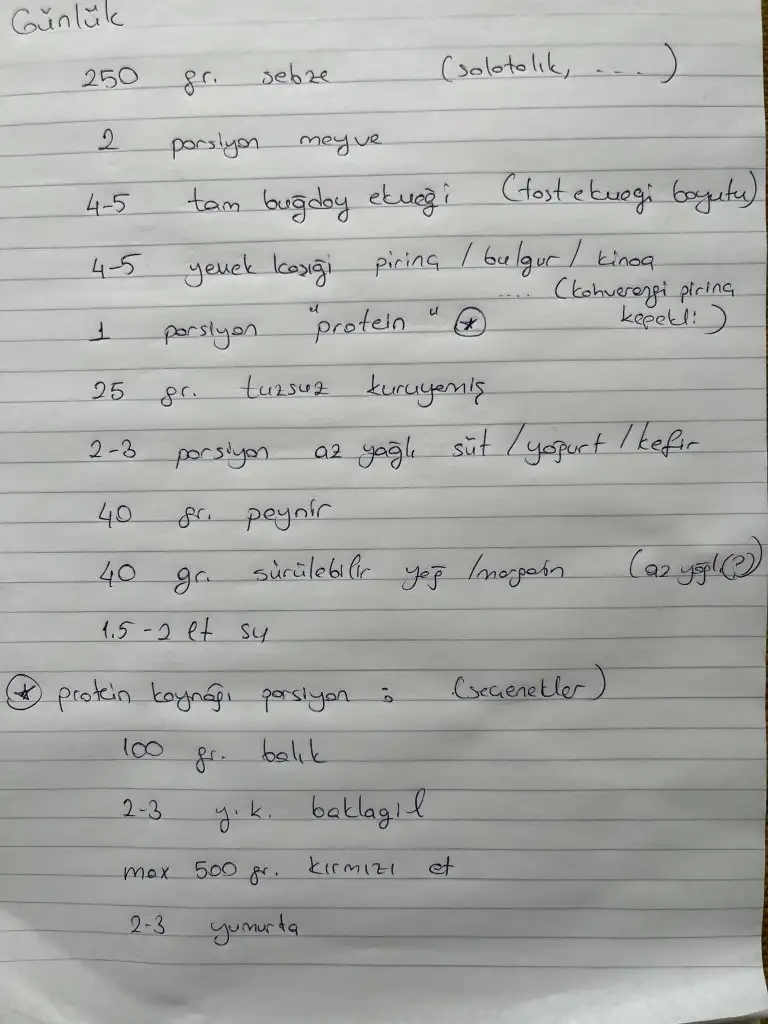 Günlük
250 gr. sebze (salatalık, ....)
2 porsiyon meyve
4-5 tam buğday ekmeği (tost ekmegi boyutu)
4-5 yemek kaşığı pirinç / bulgur / kinoa
.... (kahverengi pirinç
kepekli)
1 porsiyon "protein" *
25 gr. tuzsuz kuruyemiş
2-3 porsiyon az yağlı süt / yoğurt / kefir
40 gr. peynir
40 gr. sürülebilir yağ / margarin (az yağlı(?))
1.5 - 2 lt su
* protein kaynağı porsiyon : (seçenekler)
100 gr. balık
2-3 y.k. baklagil
max 500 gr. kırmızı et
2-3 yumurta